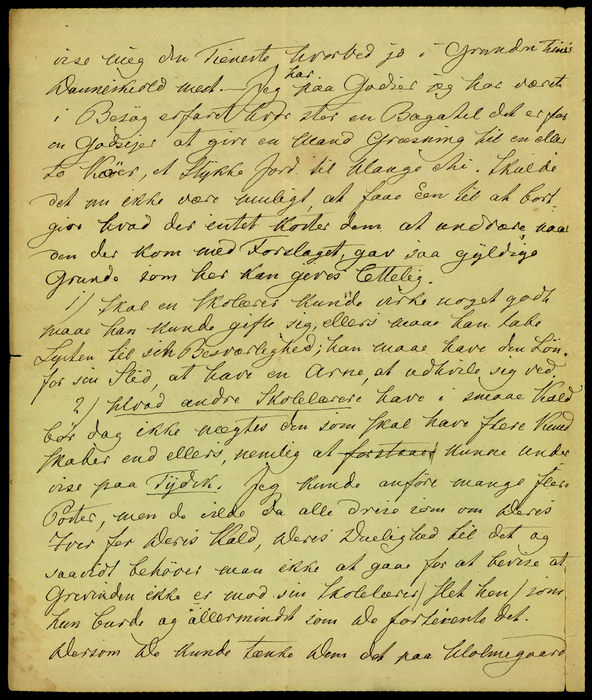 vise mig den Tieneste hvorved jo i Grunden
Danneskiold med. — Jeg har paa Godser jeg har været
i Besøg erfaret hvor stor en Bagatel det er for
en Godsejer at give en Mand Græsning til en eller
to Køer, et Stykke Jord til Mange Ski. Skulde
det nu ikke være muligt, at faae Een til at bort
give hvad der intet koster dem at undvære, naar
den der kom med Forslaget, gav saa gyldige
Grunde som her kan gives
1) Skal en Skolærer kunde virke noget godt
maae han kunde gifte sig, ellers maae han tabe
Lysten til sin Besværlighed; han maae have den Løn
for sin Flid, at have en Arne, at udhvile sig ved.
2) Hvad andre Skolelærere have i smaae Kald
bør dog ikke nægtes den som skal have flere Kund
skaber end ellers, nemlig at forstaae kunne under
vise paa Tydsk. Jeg kunde anføre mange flere
Poster, men de ville da alle dreie sig om Deres
Iver for Deres Kald, Deres Duelighed til det og
saavidt behøver man ikke at gaae for at bevise at
Grevinden ikke er mod sin Skolelærer som
hun burde og allermindst som De fortiente det.
Dersom De kunde tænke Dem det paa Holmegaard